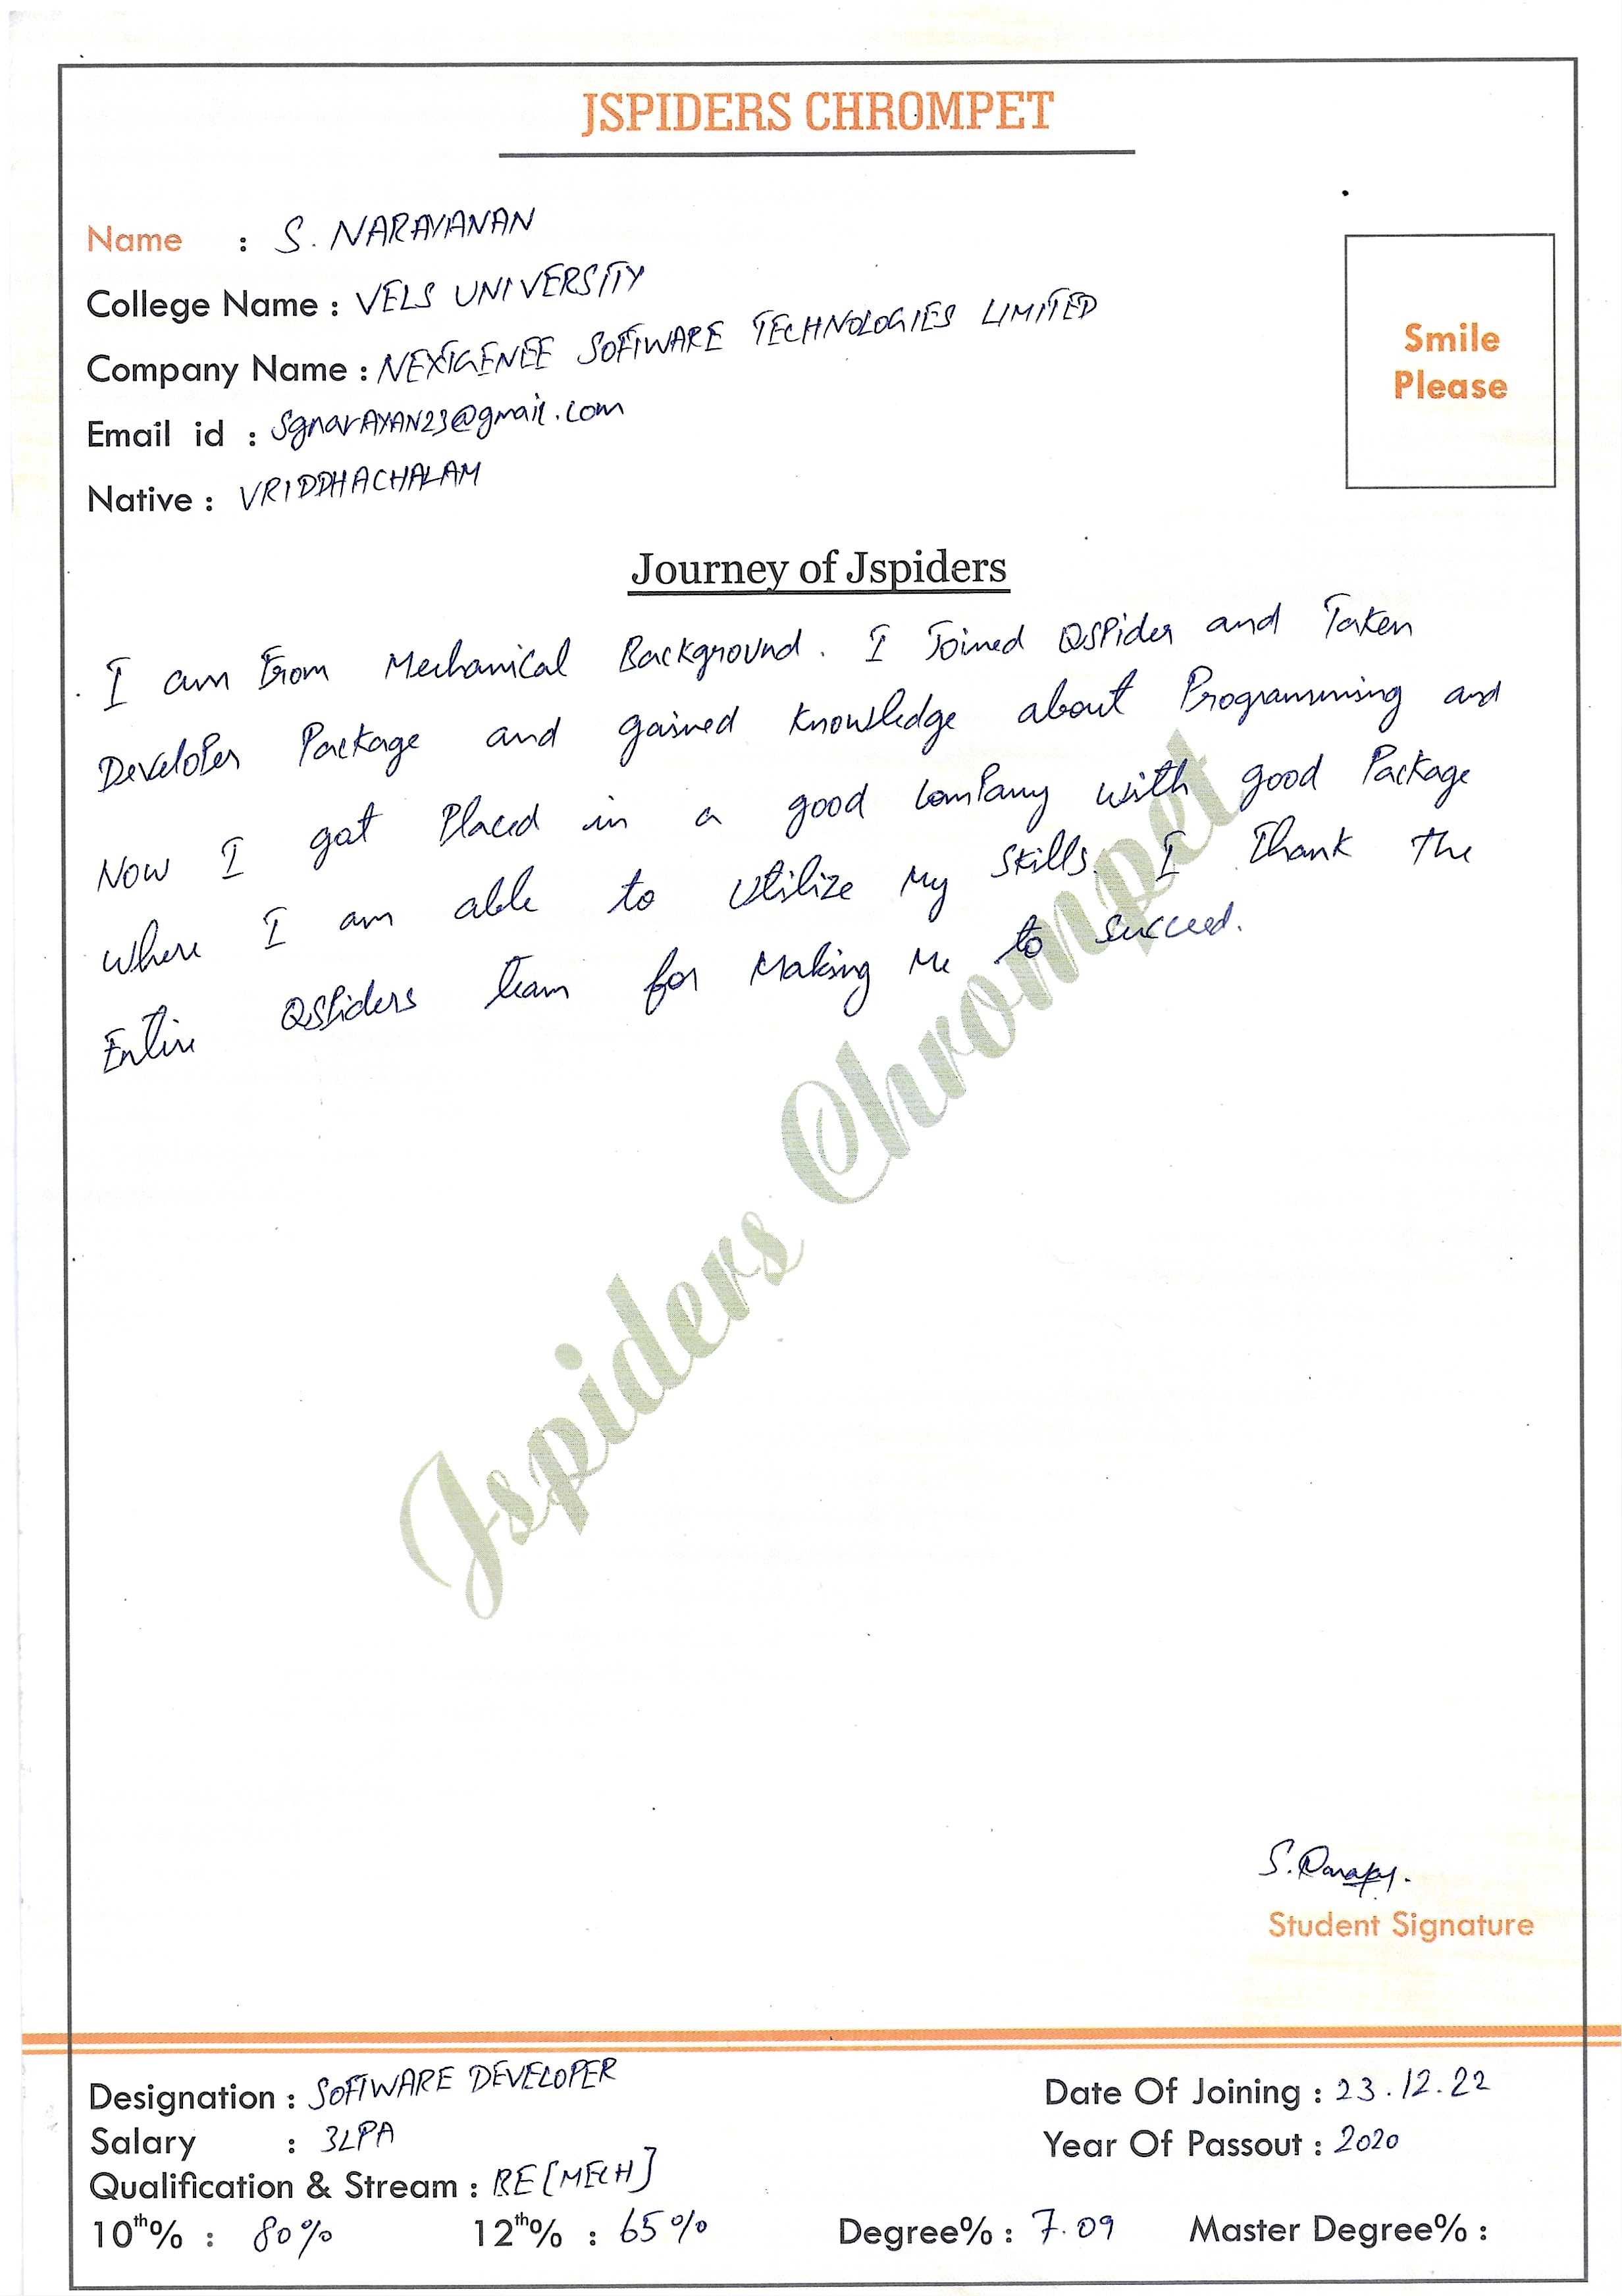 JSPIDERS CHROMPET
Name : S. NARAYANAN
College Name : VELS UNIVERSITY
Company Name : NEXTGENEE SOFTWARE TECHNOLOGIES LIMITED
Email id : SgnarAYAN23@gmail.com
Native : VRIDDHACHALAM
Smile
Please
Journey of Jspiders
I am From Mechanical Background. I Joined QSPider and Taken
Developer Package and gained knowledge about Programming and
Now I got Placed in a good Company with good Package
where I am able to Utilize My Skills. I Thank the
Entire QSPiders team for Making Me to succeed.
Jspiders Chrompet
Student Signature
Designation : SOFTWARE DEVELOPER
Date Of Joining : 23.12.22
Salary : 3LPA
Year Of Passout : 2020
Qualification & Stream : BE [MECH]
10th% : 80%
12th% : 65%
Degree% : 7.09
Master Degree% :